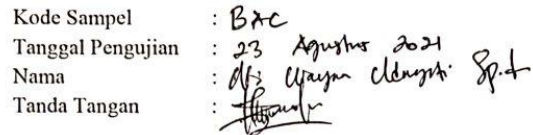 Kode Sampel : BAC
Tanggal Pengujian : 23 Agustus 2021
Nama : Wayan
Tanda Tangan :